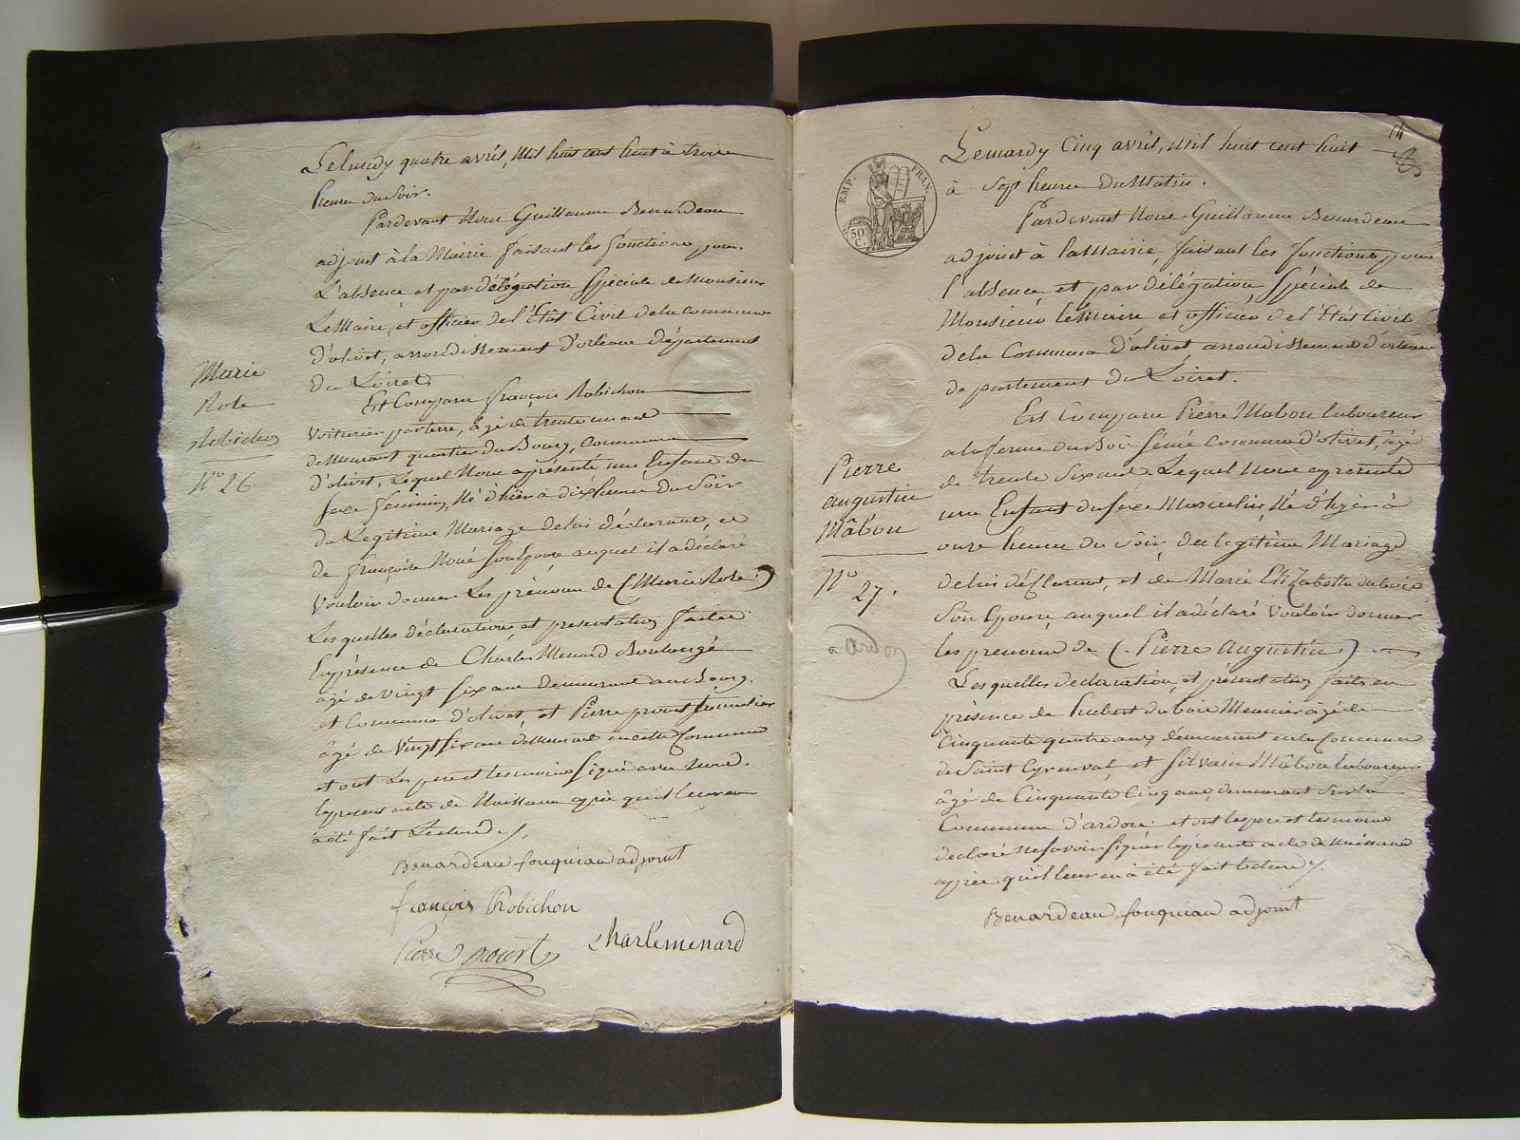 Le lundy quatre avril, mil huit cent huit à trois
heure du Soir.
Pardevant Nous Guillaume Benardeau
adjoint à la Mairie faisant les fonctions pour
L'absence et par délégation Spéciale de Monsieur
Le Maire, et officier de l'État Civil de la commune
d'olivet, arrondissement d'orleans Département
du Loiret.
Est Comparu françois Robichon
Voiturier par terre, âgé de trente un ans
demeurant quartier du Bourg, Commune
d'olivet, Lequel Nous a présenté un Enfant du
sexe feminin, Né d'hier à dix heures du Soir
du Legitime Mariage de lui déclarant, et
de françoise Noué son Epouse auquel il a déclaré
Vouloir donner Les prénoms de (Marie Rose)
Lesquelles déclarations et presentation faites
En présence de Charles Menard Boulangé
âgé de Vingt six ans Demeurant au bourg
et Commune d'olivet, et Pierre prout tonnelier
âgé de Vingt six ans demeurant en cette Commune
et ont Les pere et temoins signé avec Nous
le present acte de Naissance après qu'il leur en
à été fait Lecture
Benardeau fouquiau adjoint
françois Robichon
Pierre prout charle menard
Marie
Rose
Robichon
N° 26
14
Le mardy Cinq avril, mil huit cent huit
à Sept heure du Matin.
Pardevant Nous Guillaume Benardeau
adjoint à la Mairie, faisant les fonctions pour
l'absence et par délégation Spéciale de
Monsieur le Maire et officier de l'État Civil
de la Commune d'olivet arrondissement d'orleans
departement du Loiret.
Est Comparu Pierre Mabou laboureur
a la ferme du Bois semé commune d'olivet, âgé
de trente six ans Lequel Nous a presenté
un Enfant du sexe Masculin, Né d'hyer à
onze heures du Soir du legitime Mariage
de lui déclarant, et de Marie Elizabette dubois
Son Epouse auquel il a déclaré Vouloir donner
les prenoms de (Pierre Augustin)
Lesquelles declaration, et présentation faits en
présence de hubert dubois Meunier âgé de
Cinquante quatre ans, demeurant en la Commune
de Saint Cyr en val, et Silvain Mâbou laboureur
âgé de Cinquante Cinq ans, demeurant sur la
Commune d'ardon et ont les pere et temoins
declaré ne savoir signer le présente acte de Naissance
après qu'il leur en à été fait lecture
Benardeau fouquiau adjoint
Pierre
augustin
Mâbou
N°
27.
a ardon
EMP. FRAN.
50
C.